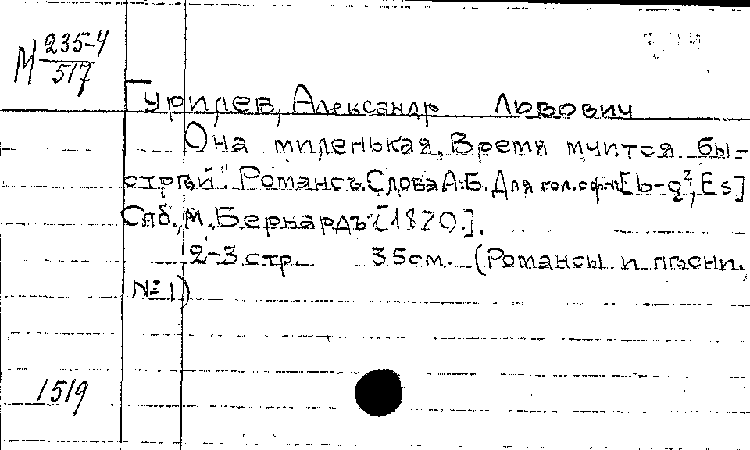 М 235-4
517
Гурилев, Александр Львович
Она миленькая, Время мчится бы-
стрѣй". Романсъ. Слова А.Б. Для гол. с ф-п [b-g², Es]
Спб., М. Бернардъ [1820.].
2-3 стр. 35 см. (Романсы и пѣсни,
№ 1)
1519